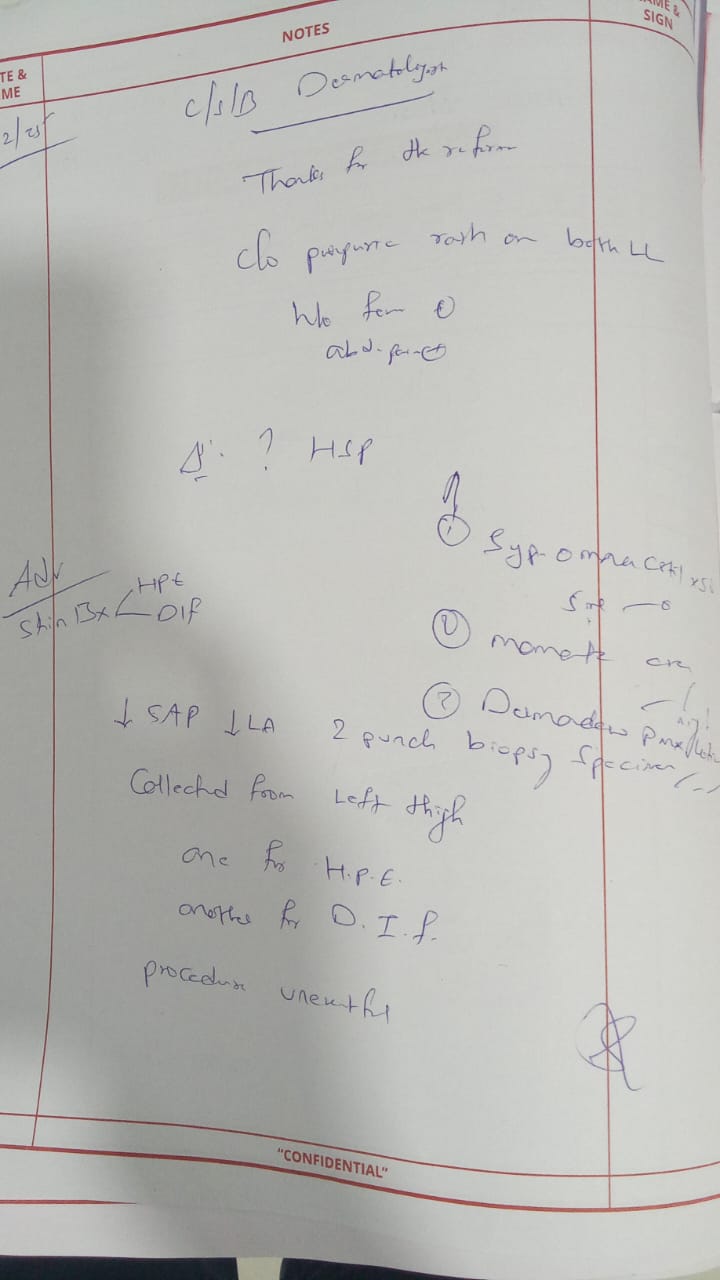 NOTES
SIGN
TE &
ME
2/25
C/S/B Dermatologist
Thanks for the referral
C/o purpuric rash on both LL
h/o fever ⊕
abd. pain ⊕
Δ: ? HSP
Adv
Skin Bx < HPE
DIF
①
Syp.
5 ml —o
② momate
③
↓ SAP ↓ LA 2 punch biopsy specimen
Collected from Left thigh
one for H.P.E.
another for D.I.f.
procedure uneventful
"CONFIDENTIAL"